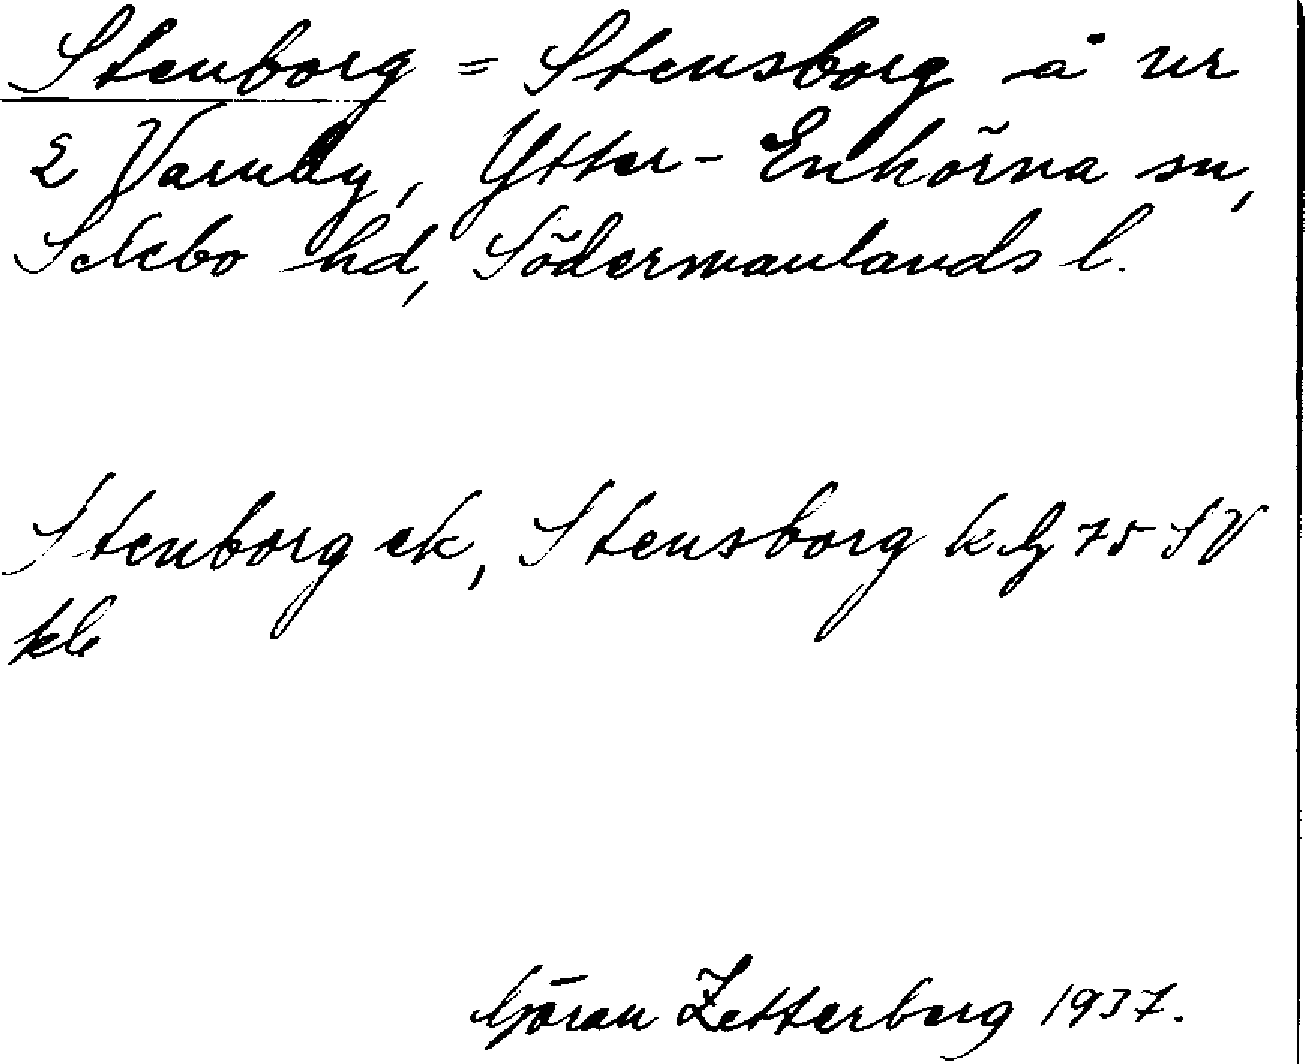 Stenborg = Stensborg å nr
2 Varnby, Ytter-Enhörna sn,
Selebo hd, Södermanlands l.
Stenborg ek, Stensborg k.bl 75 SV
kb
Göran Zetterberg 1937.